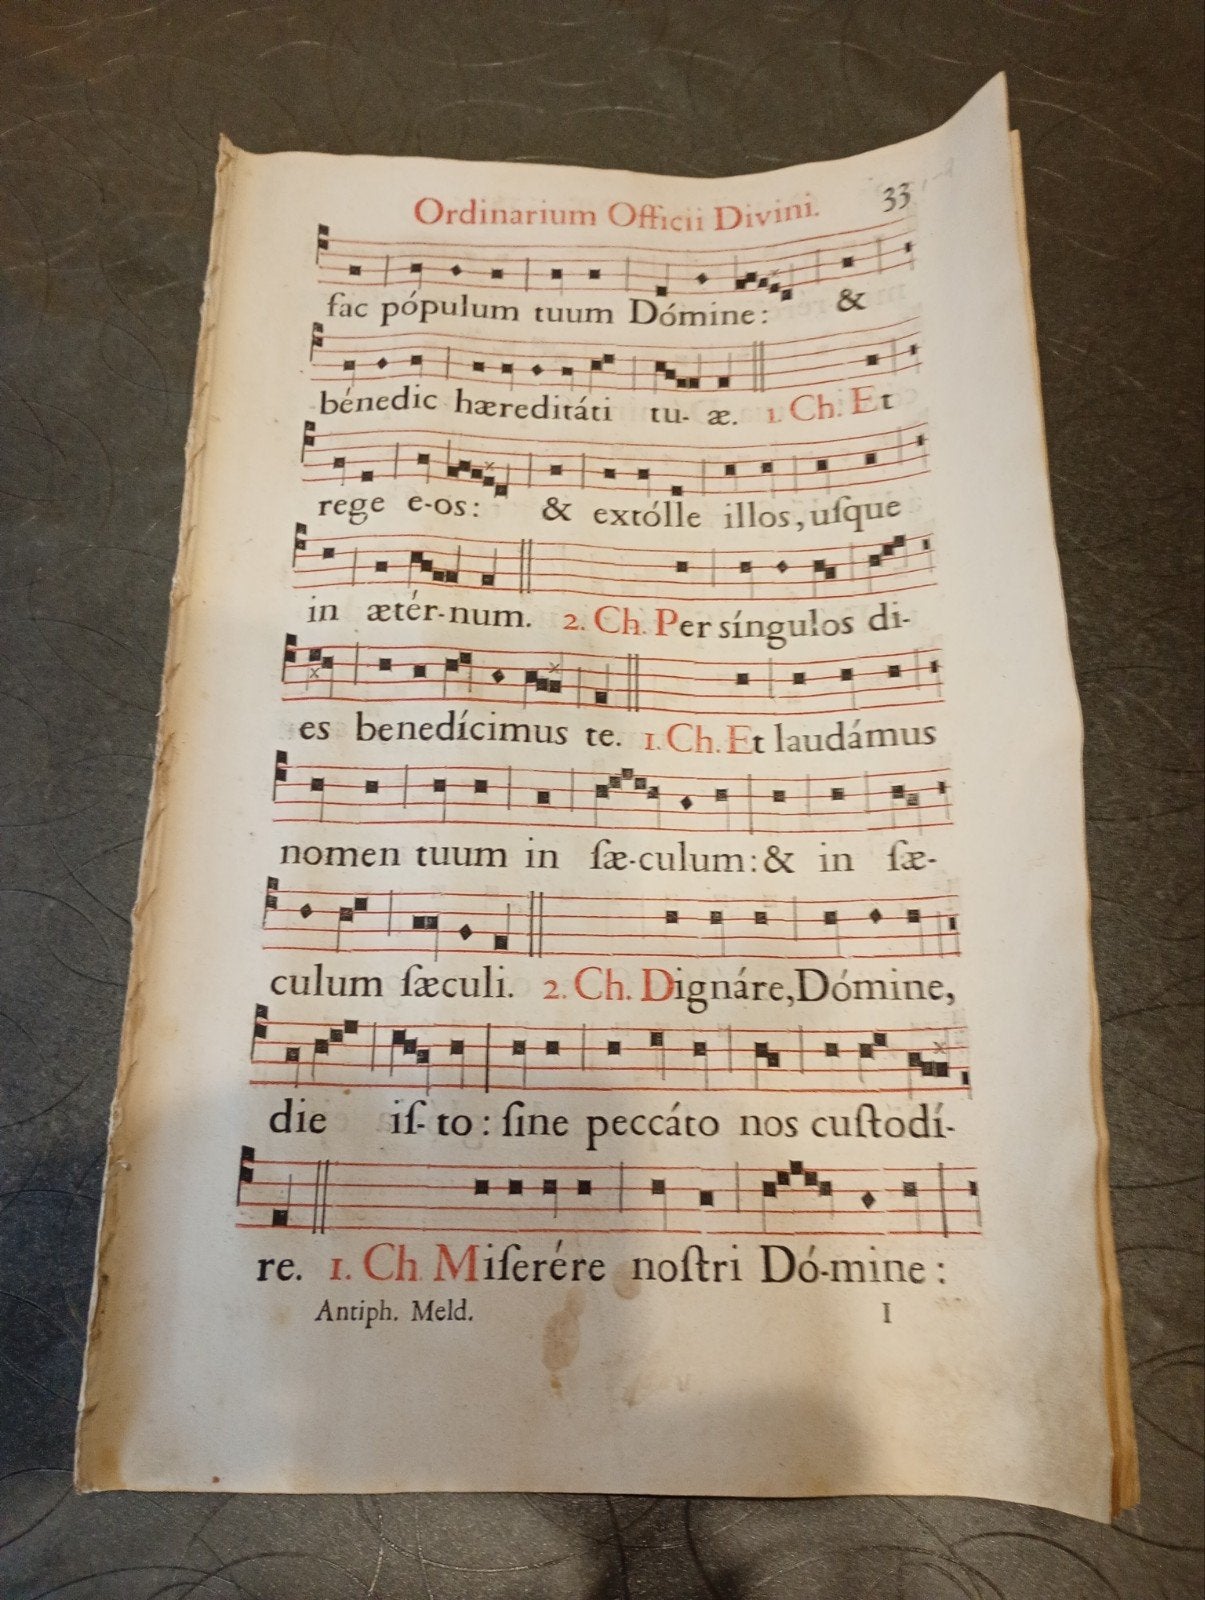 Ordinarium Officii Divini. 33
fac pópulum tuum Dómine: &
bénedic hæreditáti tu- æ. 1. Ch. Et
rege e-os: & extólle illos, uſque
in ætér-num. 2. Ch. Per síngulos di-
es benedícimus te. 1. Ch. Et laudámus
nomen tuum in ſæ-culum: & in ſæ-
culum ſæculi. 2. Ch. Dignáre, Dómine,
die iſ- to: ſine peccáto nos cuſtodí-
re. 1. Ch. Miſerére noſtri Dó-mine:
Antiph. Meld. I